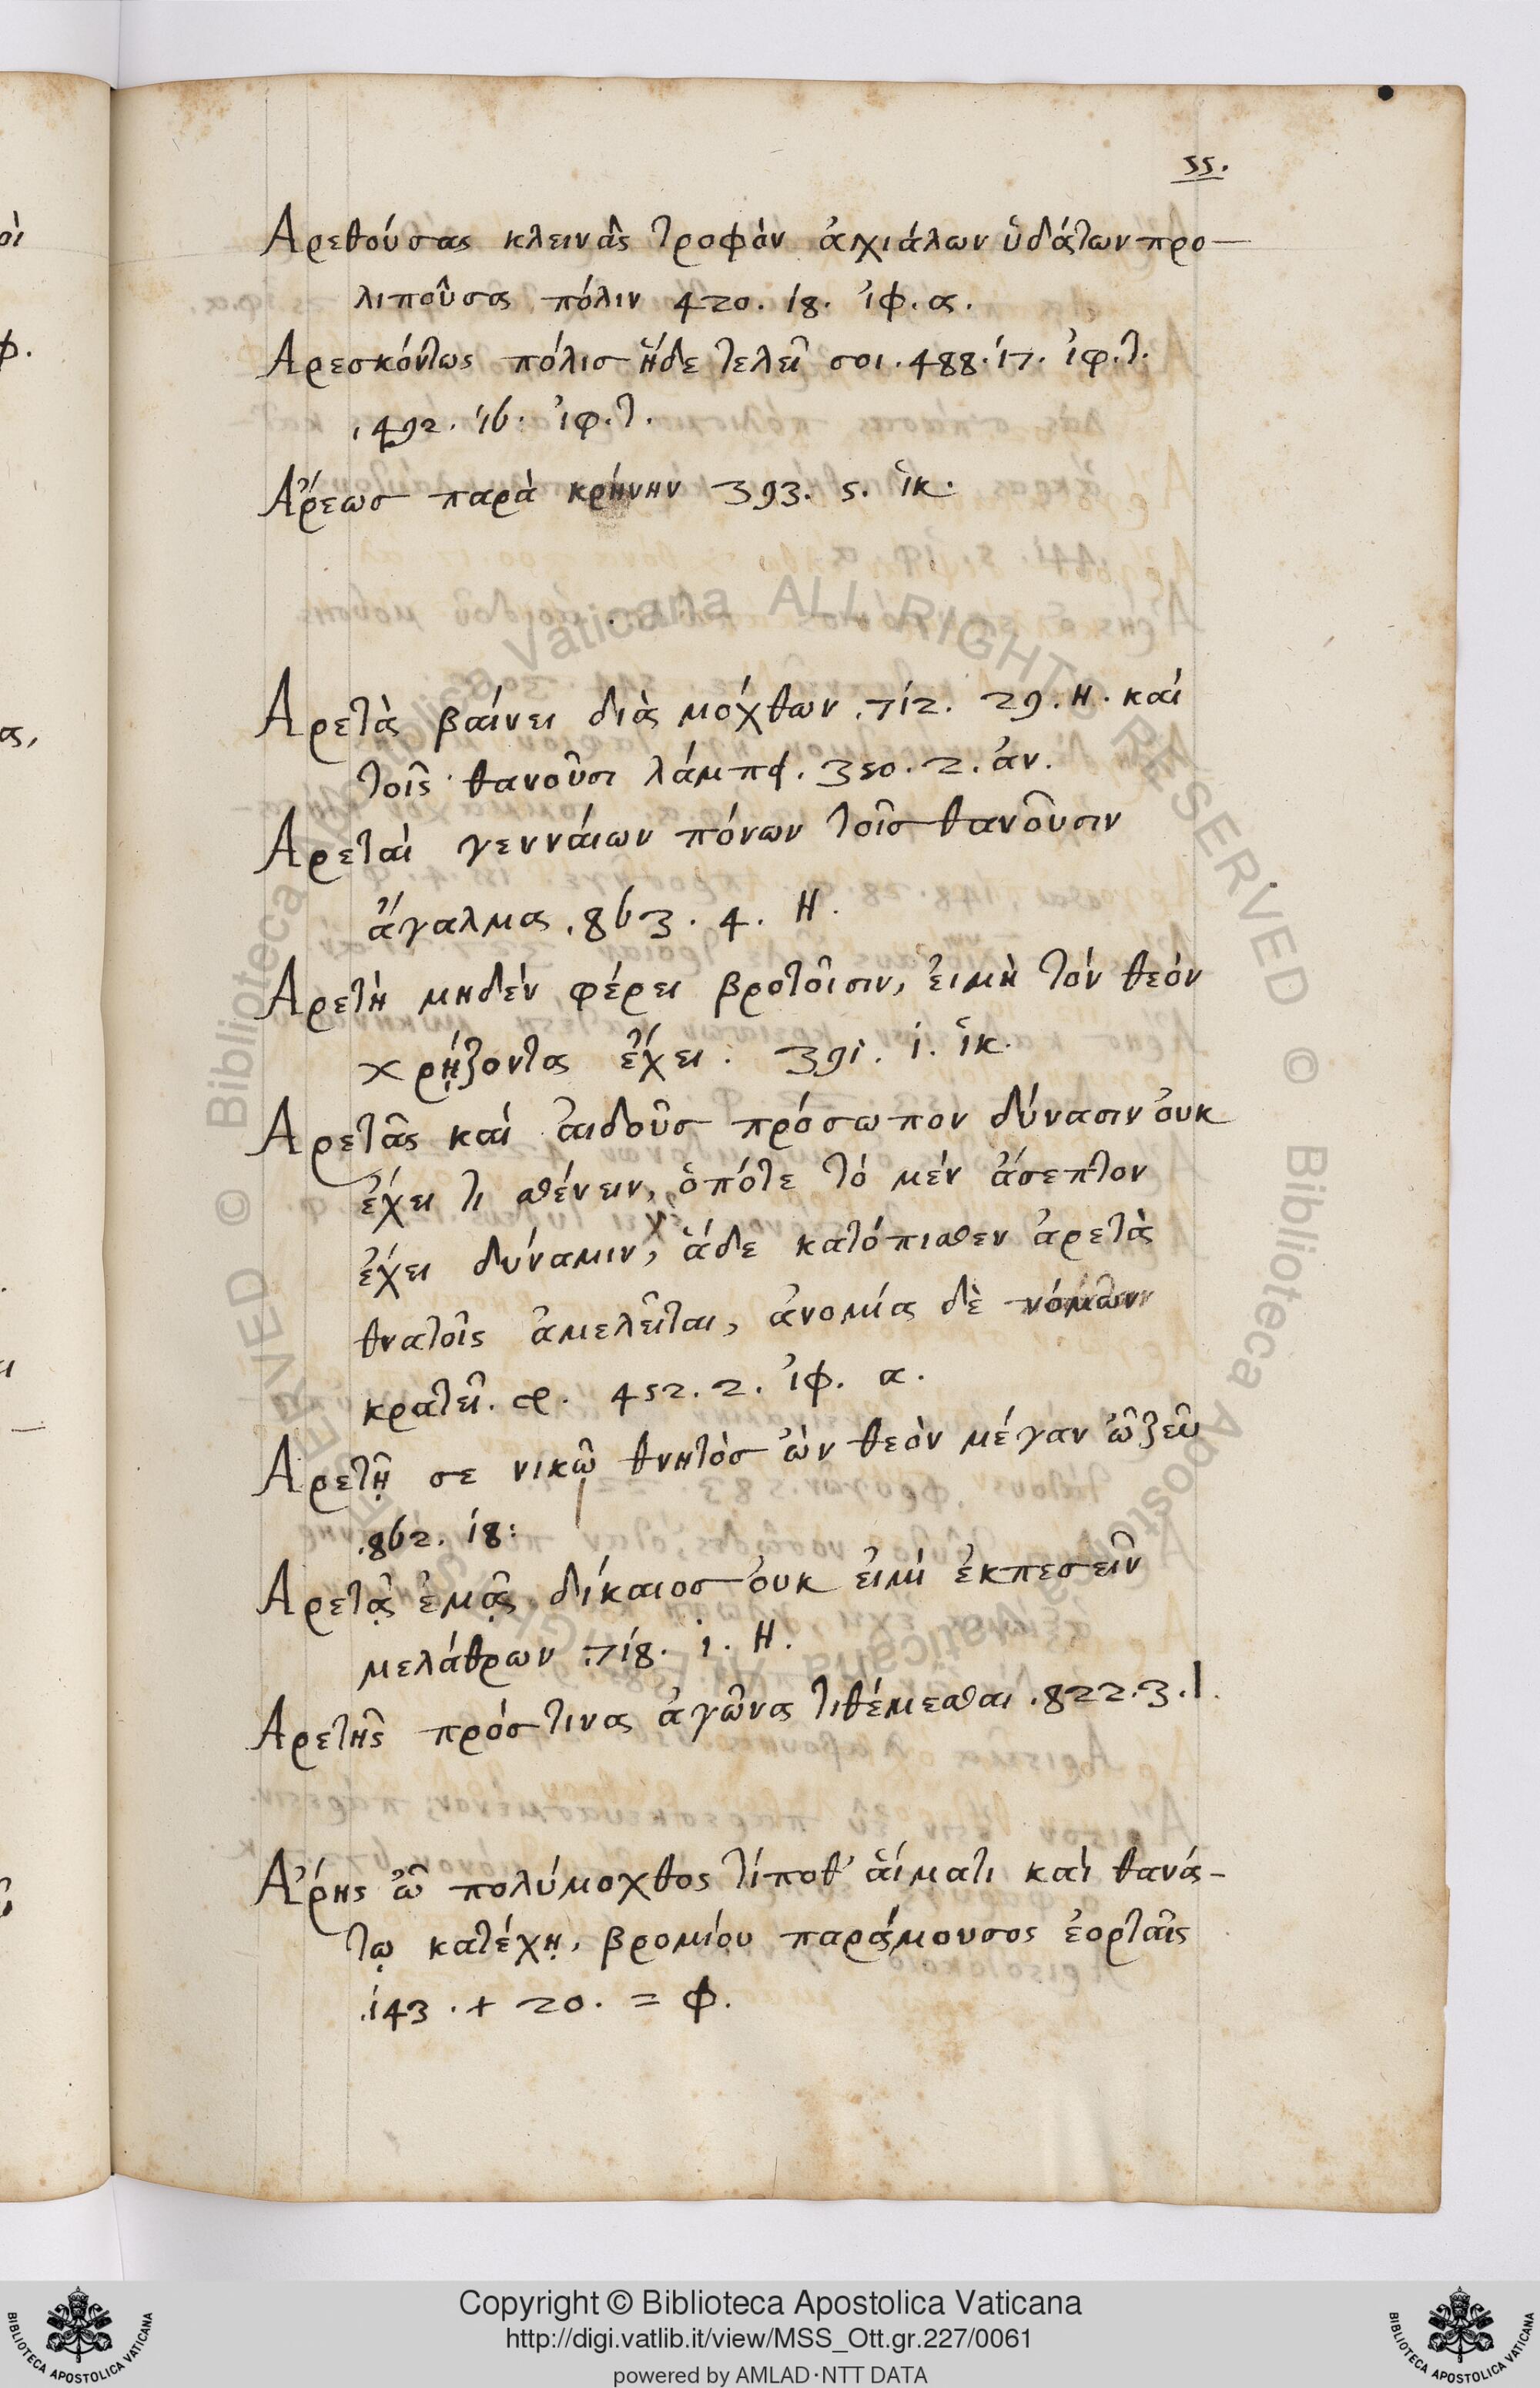 55.
Αρεθούσας κλεινᾶς τροφὸν ἀγχιάλων ὑδάτων προ-
λιποῦσα πόλιν 420. 18. ἰφ. α.
Αρεσκόντως πόλισ ἥδε τελεῖ σοι. 488. 17. ἰφ. τ.
492. 16. ἰφ. τ.
Αῤεωσ παρὰ κρήνην 393. 5. ἱκ.
Αρετὰ βαίνει διὰ μόχθων. 712. 29. Η. καὶ
τοῖς θανοῦσι λάμπει. 350. 2. ἀν.
Αρεταὶ γενναίων πόνων τοῖσ θανοῦσιν
ἄγαλμα. 863. 4. Η.
Αρετὴ μηδὲν φέρει βροτοῖσιν, εἰμὴ τὸν θεὸν
χρῄζοντα ἔχει. 391. 1. ἱκ.
Αρετᾶς καὶ αἰδοῦσ πρόσωπον δύνασιν οὐκ
ἔχει τι σθένειν, ὁπότε τὸ μὲν ἄσεπτον
ἔχει δύναμιν, ἁ δὲ κατόπισθεν ἀρετὰ
θνατοῖς ἀμελεῖται, ἀνομία δὲ νόμων
κρατεῖ. 452. 2. ἰφ. α.
Αρετῇ σε νικῶ θνητὸσ ὢν θεὸν μέγαν ὦ ζεῦ
862. 18:
Αρετᾷς ἐμᾷς δίκαιοσ οὐκ εἰμὶ ἐκπεσεῖν
μελάθρων 718. 1. Η.
Αρετῆς πρόσ τινα ἀγῶνα τιθέμεσθαι. 822. 3. Ι.
Αῤης ὦ πολύμοχθος τίποθ' αἵματι καὶ θανά-
τῳ κατέχῃ, βρομίου παράμουσος ἑορταῖς
143. + 20. = φ.
Copyright © Biblioteca Apostolica Vaticana
http://digi.vatlib.it/view/MSS_Ott.gr.227/0061
powered by AMLAD·NTT DATA